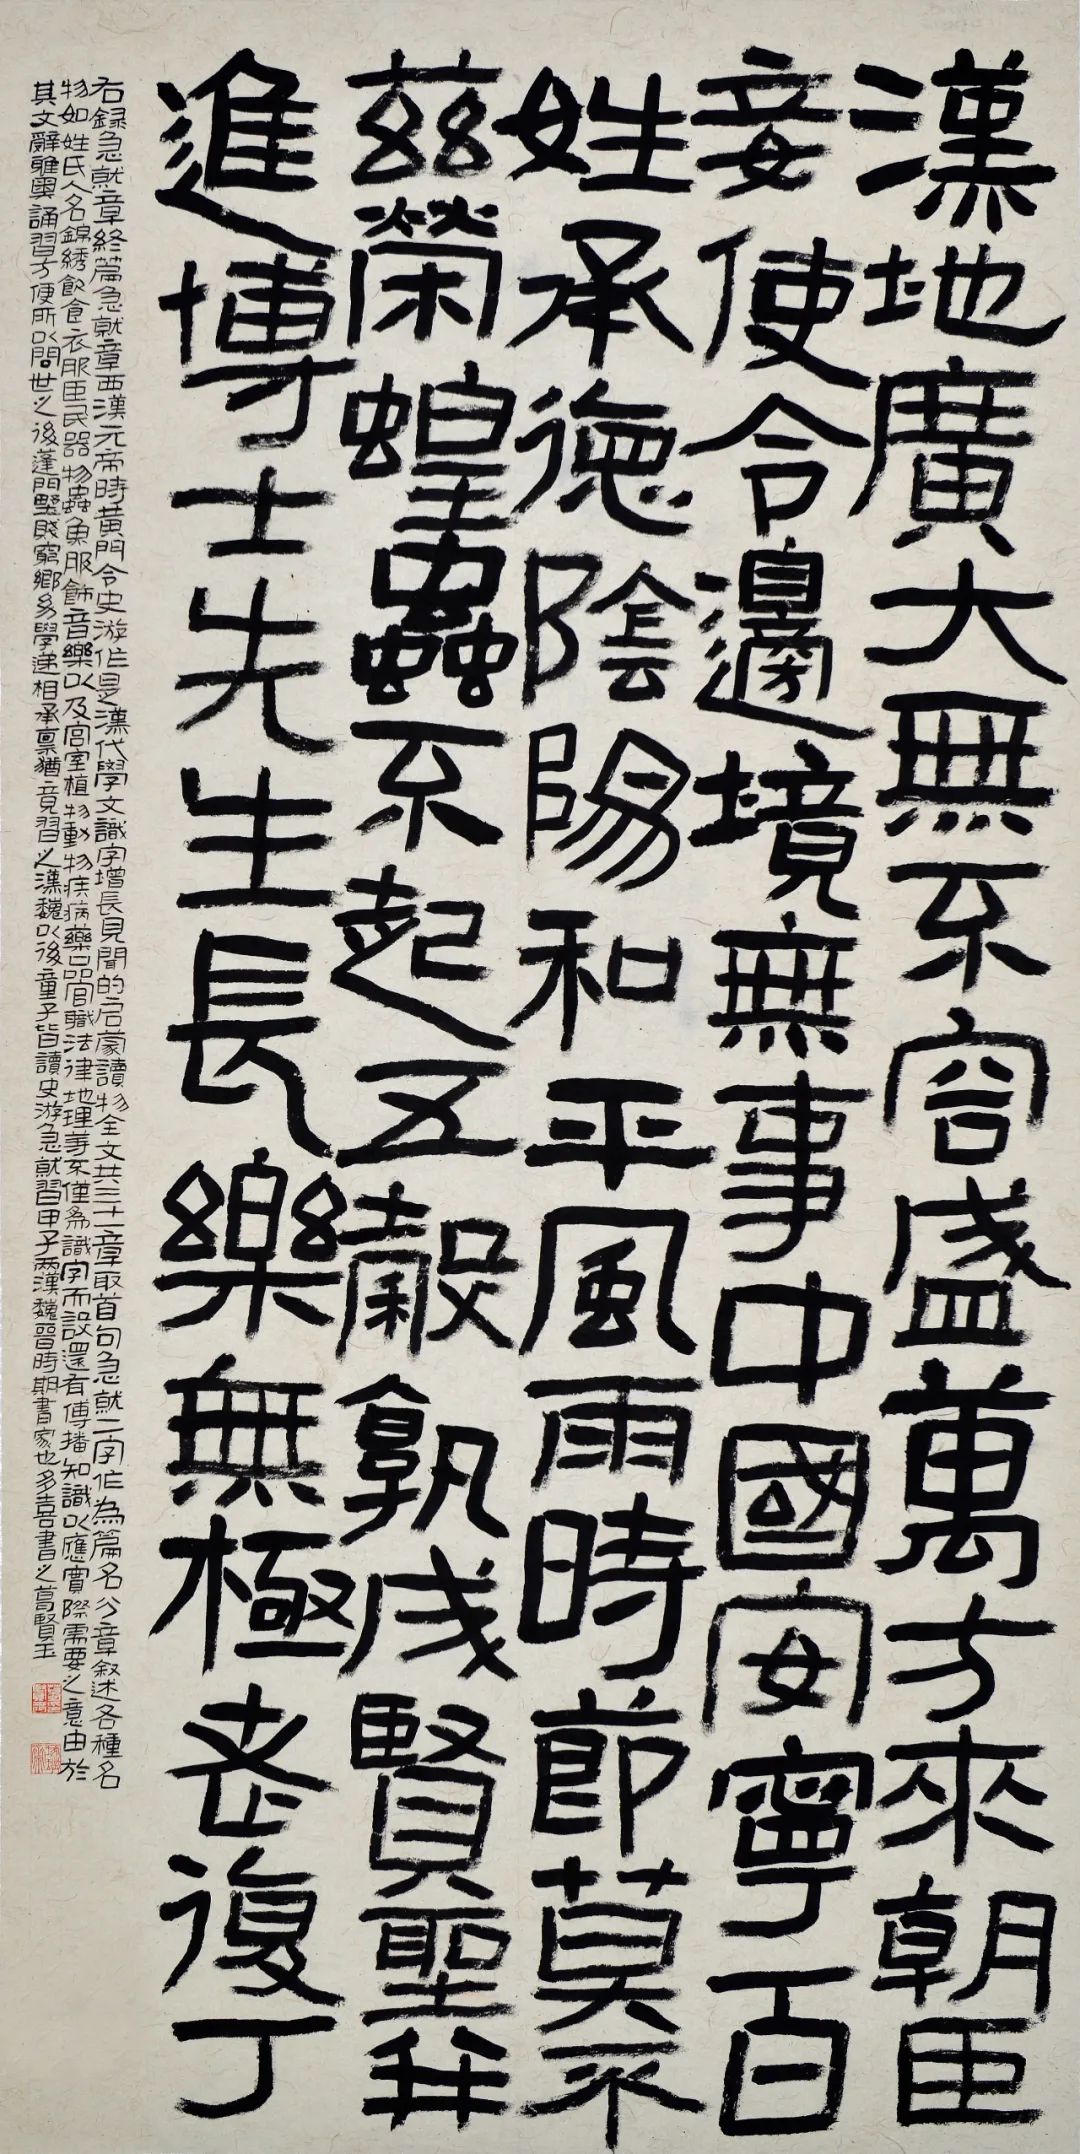 漢地廣大無不容盛萬方來朝臣
妾使令邊境無事中國安寧百
姓承德陰陽和平風雨時節莫不
茲榮蝗蟲不起五穀孰成賢聖并
進博士先生長樂無極老復丁
右録急就章終篇急就章西漢元帝時黄門令史游作是漢代學文識字增長見聞的启蒙讀物全文共三十一章取首句急就二字作為篇名分章叙述各種名
物如姓氏人名錦綉飲食衣服臣民器物蟲魚服飾音樂以及宫室植物動物疾病藥品官職法律地理等不僅為識字而設還有傳播知識以應實際需要之意由於
其文辭雅奥誦習方便所以問世之後蓬門野賤窮鄉幼學遞相承禀猶竟習之漢魏以後童子皆讀史游急就習甲子两漢魏晉時期書家也多喜書之葛賢玉